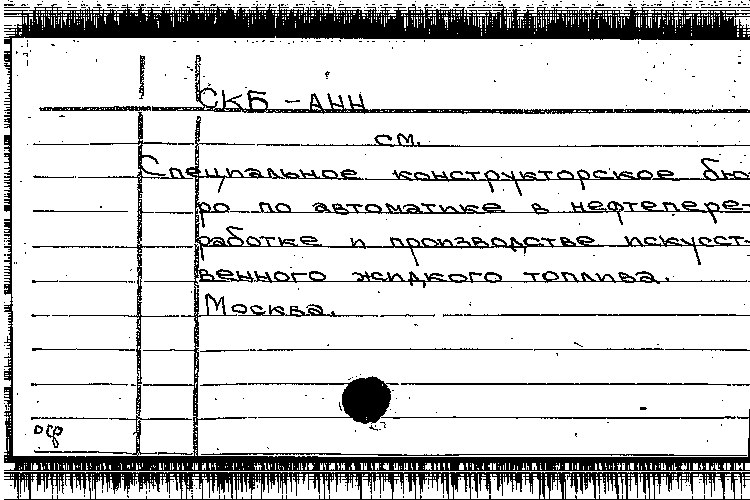 СКБ - АНН
см.
Специальное конструкторское бю-
ро по автоматике в нефтепере-
работке и производстве искусст-
венного жидкого топлива.
Москва.